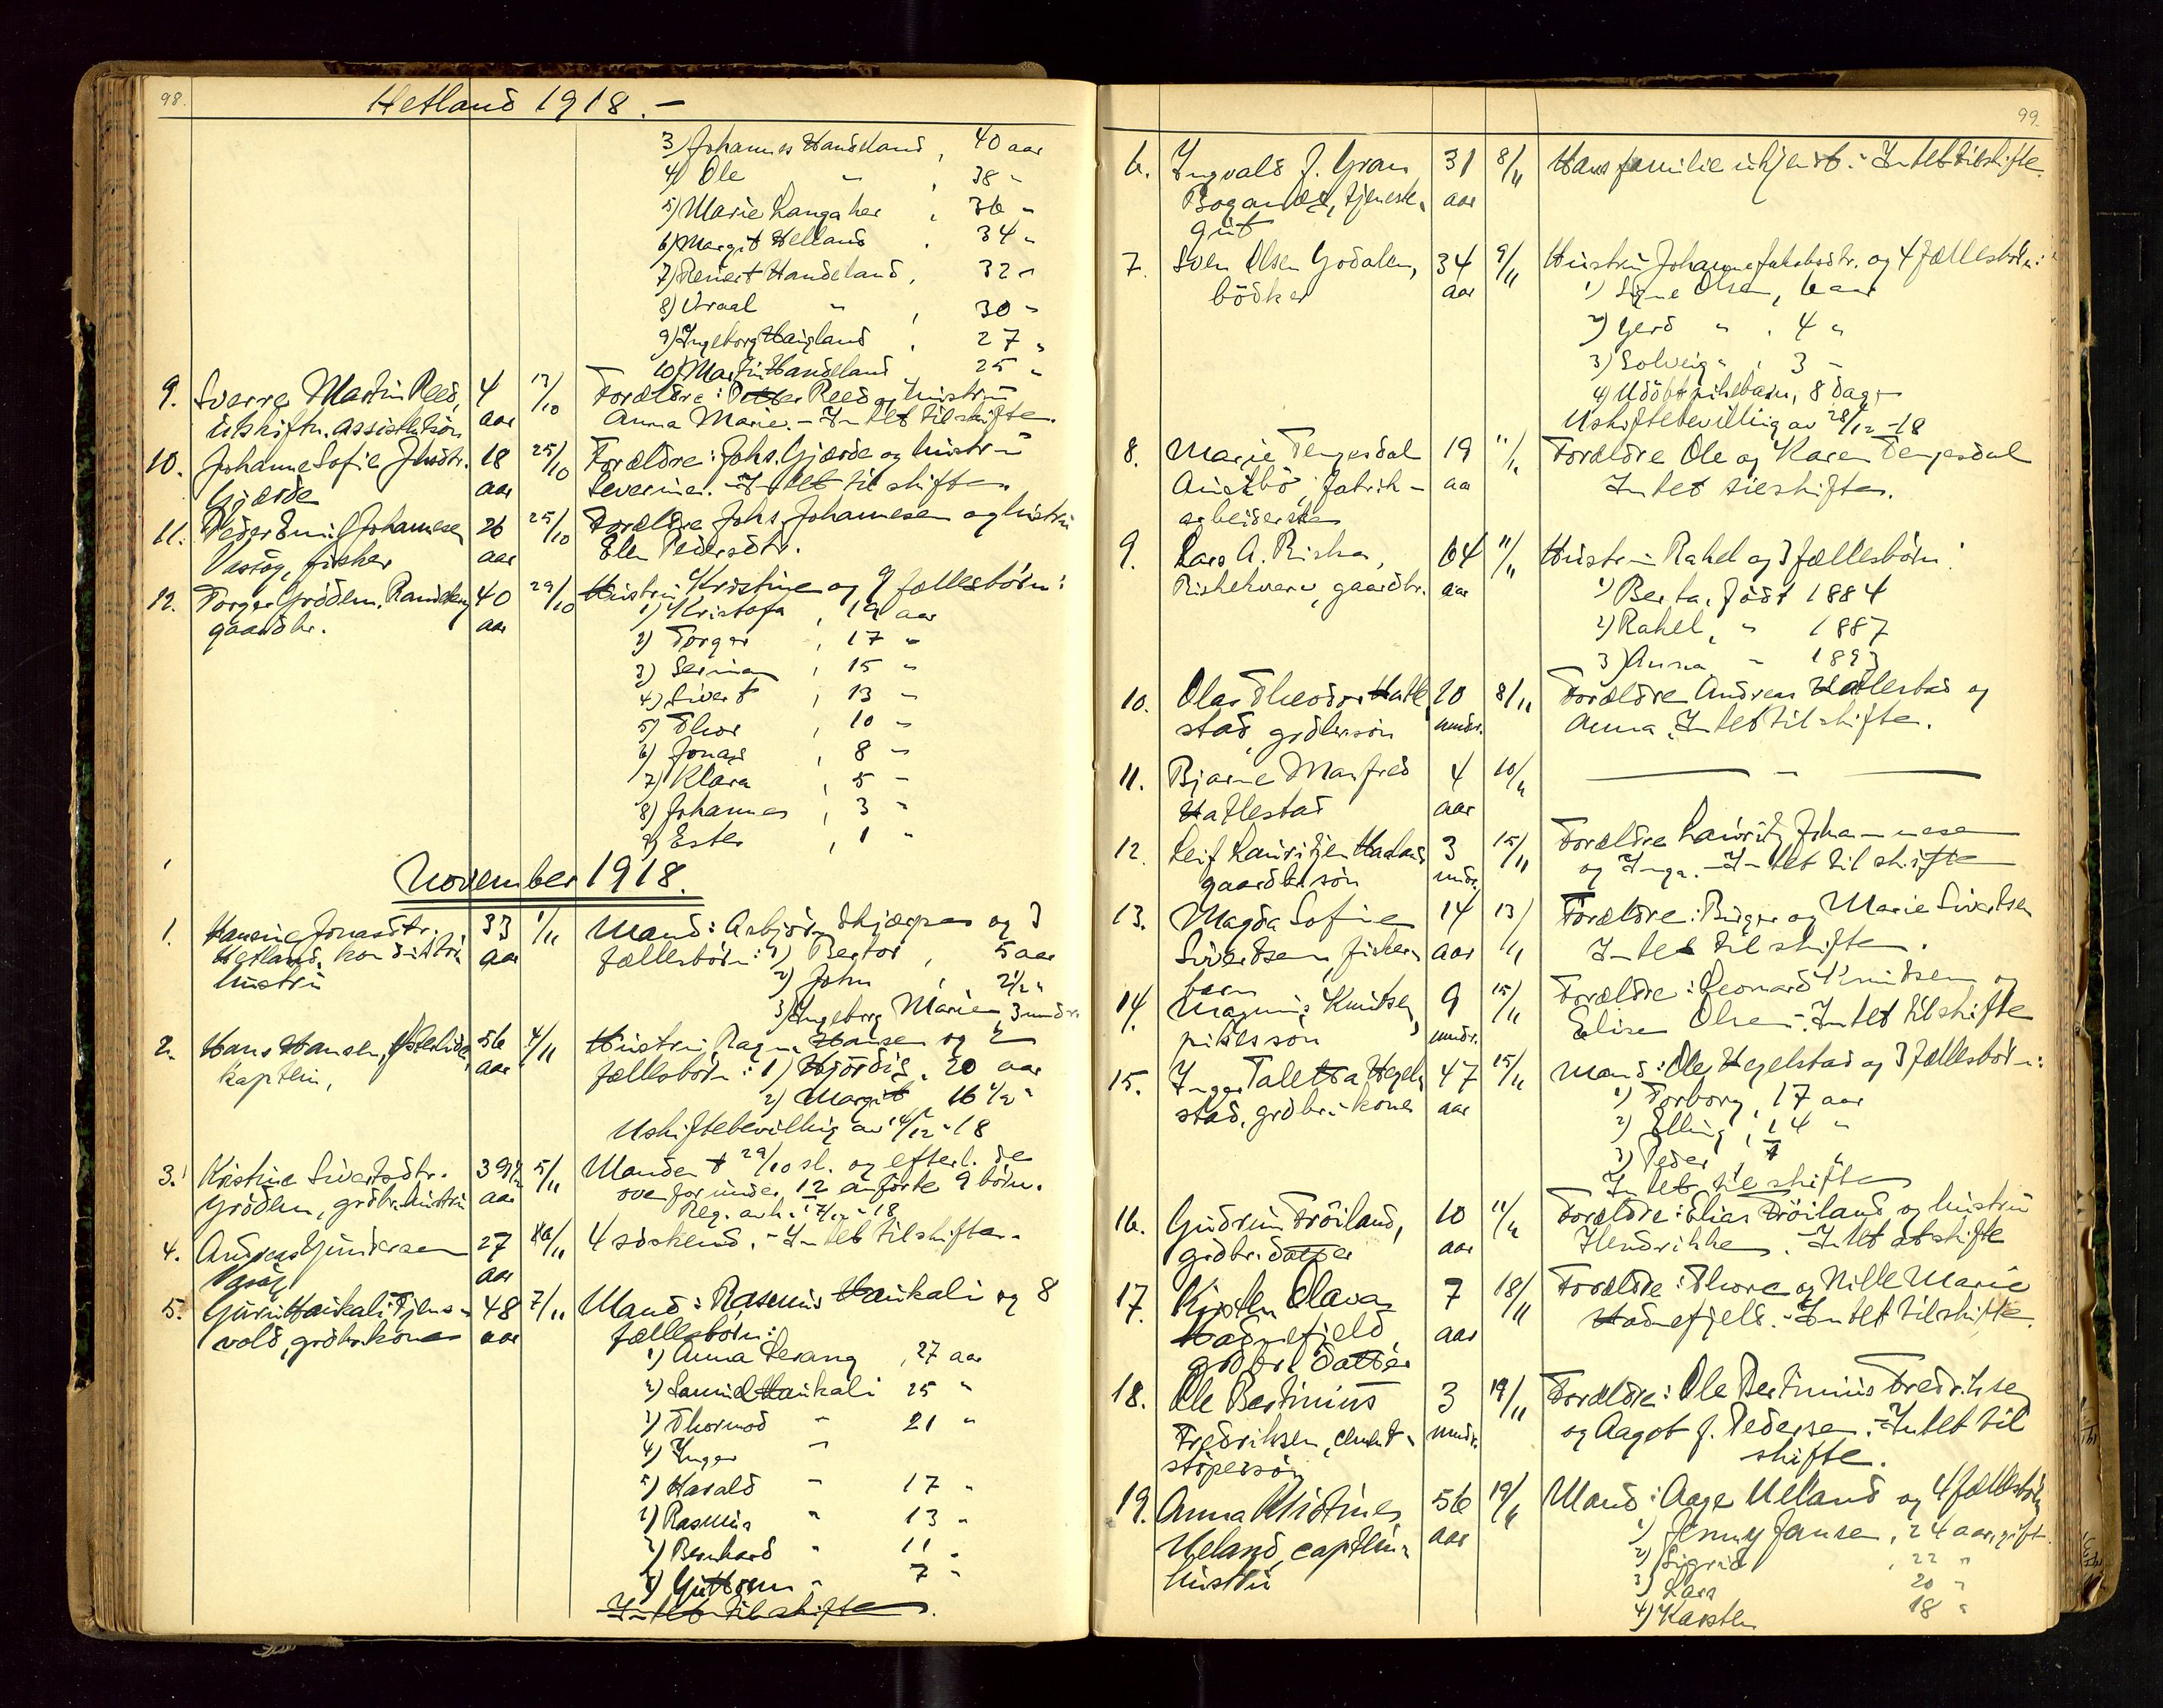 98.
Hetland 1918. –
3) Johannes Handeland, 40 aar
4) Ole " , 38 "
5) Marie Langaker , 36 "
6) Margit Helland , 34 "
7) Reinert Handeland, 32 "
8) Vraal " , 30 "
9) Ingeborg Haugland , 27 "
10) Martin Handeland 25 "
9. Sverre Martin Reed, 4 13/10 Forældre: Petter Reed og hustru
utskiftn. assistentsön aar Anna Marie. – Intet til skifte.
10. Johanne Sofie Johsdtr. 18 25/10 Forældre: Johs. Gjærde og hustru
Gjærde aar Severine. – Intet til skifte.
11. Peder Emil Johannesen 26 25/10 Forældre Johs. Johannesen og hustru
Vasög, fisker aar Elen Pedersdtr.
12. Torger Gröden, Randeberg 40 29/10 Hustru Kristine og 9 fællesbörn:
gaardbr. aar 1) Kristofa , 19 aar
2) Torger , 17 "
3) Serina , 15 "
4) Sivert , 13 "
5) Thor , 10 "
6) Jonas , 8 "
7) Klara , 5 "
8) Johannes , 3 "
9) Ester , 1 "
November 1918.
1. Hansine Jonasdtr. 33 1/11 Mand: Asbjörn Skjæpes og 3
Hetland, konduktör aar fællesbörn: 1) Bertor , 5 aar
hustru 2) John , 2½ "
3) Ingeborg Marie, 3 mndr.
2. Hans Hansen, Österlide, 56 4/11 Hustru Ragna Hansen og 2
kaptein, aar fællesbörn: 1) Hjördis, 20 aar
2) Margit 16½ "
Uskiftebevilling av 14/12 - 18
3. Kristine Sivertsdtr. 39½ 5/11 Manden † 29/10 sl. og efterl. de
Gröden, grdbr. hustru aar ovenfor under 12 anförte 9 börn.
Reg. avh. 17/12 - 18
4. Andreas Gundersen 27 10/11 4 söskend. – Intet til skifte.
aar
5. Guri Haukali, Tjens- 48 7/11 Mand: Rasmus Haukali og 8
vold, grdbr. kone aar fællesbörn:
1) Anna Lerang , 27 aar
2) Samuel Haukali 25 "
3) Thormod " 21 "
4) Inger "
5) Harald " 17 "
6) Rasmus " 13 "
7) Bernhard " 11 "
8) Guttorm " 7 "
Intet til skifte.
99.
6. Ingvald J. Gran 31 8/11 Hans familie ukjendt. – Intet til skifte.
Bogandet, tjeneste- aar
gut
7. Sven Olsen Godalen, 34 9/11 Hustru Johanne Jakobsdtr. og 4 fællesbörn:
bödker aar 1) Signe Olsen, 6 aar
2) Gerd " , 4 "
3) Solveig " , 3 "
4) Udöbt pikebarn, 8 dage
Uskiftebevilling av 28/12 - 18
8. Marie Tengesdal 19 11/11 Forældre Ole og Karen Tengesdal
Austbö, fabrik- aa Intet til skifte.
arbeiderske
9. Lars A. Riska, 64 11/11 Hustru Rahel og 3 fællesbörn:
Riskekvern, gaardbr. aar 1) Berta, född 1884
2) Rahel, " 1887
3) Anna " 1893
10. Olav Theodor Hatle- 20 8/11 Forældre Andreas Hatlestad og
stad, grdbrsön mndr. Anna. Intet til skifte.
11. Bjarne Manfred 4 10/11 — " —
Hatlestad aar
12. Leif Lauritzen Hadland 3 15/11 Forældre Lauritz Johannesen
gaardbr sön mndr. og Inga. – Intet til skifte
13. Magda Sofie 14 13/11 Forældre: Birger og Marie Sivertsen
Sivertsen, fisker- aar Intet til skifte.
barn
14. Magnus Knutsen, 9 15/11 Forældre: Leonard Knudsen og
pikes son mndr. Elise Olsen. – Intet til skifte
15. Inger Taletta Hegel- 47 15/11 Mand: Ole Hegelstad og 3 fællesbörn:
stad, grdbr. kone aar 1) Torborg, 17 aar
2) Elling , 14 "
3) Peder , 7 "
Intet til skifte
16. Gudrun Fröiland, 10 11/11 Forældre: Elias Fröiland og hustru
grdbr. datter aar Hendrikke. Intet at skifte
17. Kirsten Olava 7 18/11 Forældre: Thore og Nille Marie
Hadnefjeld, aar Hadnefjeld. – Intet til skifte.
grdbr. datter
18. Ole Bertinius 3 19/11 Forældre: Ole Bertinius Fredriksen
Fredriksen, cement- mndr. og Aagot J. Pedersen. – Intet til
stöpersön skifte.
19. Anna Kristine 56 19/11 Mand: Aage Ueland og 4 fællesbörn
Ueland, captein- aar 1) Jenny Jansen, 24 aar, gift.
hustru 2) Sigrid , 22 "
3) Lars 20 "
4) Karsten 18 "